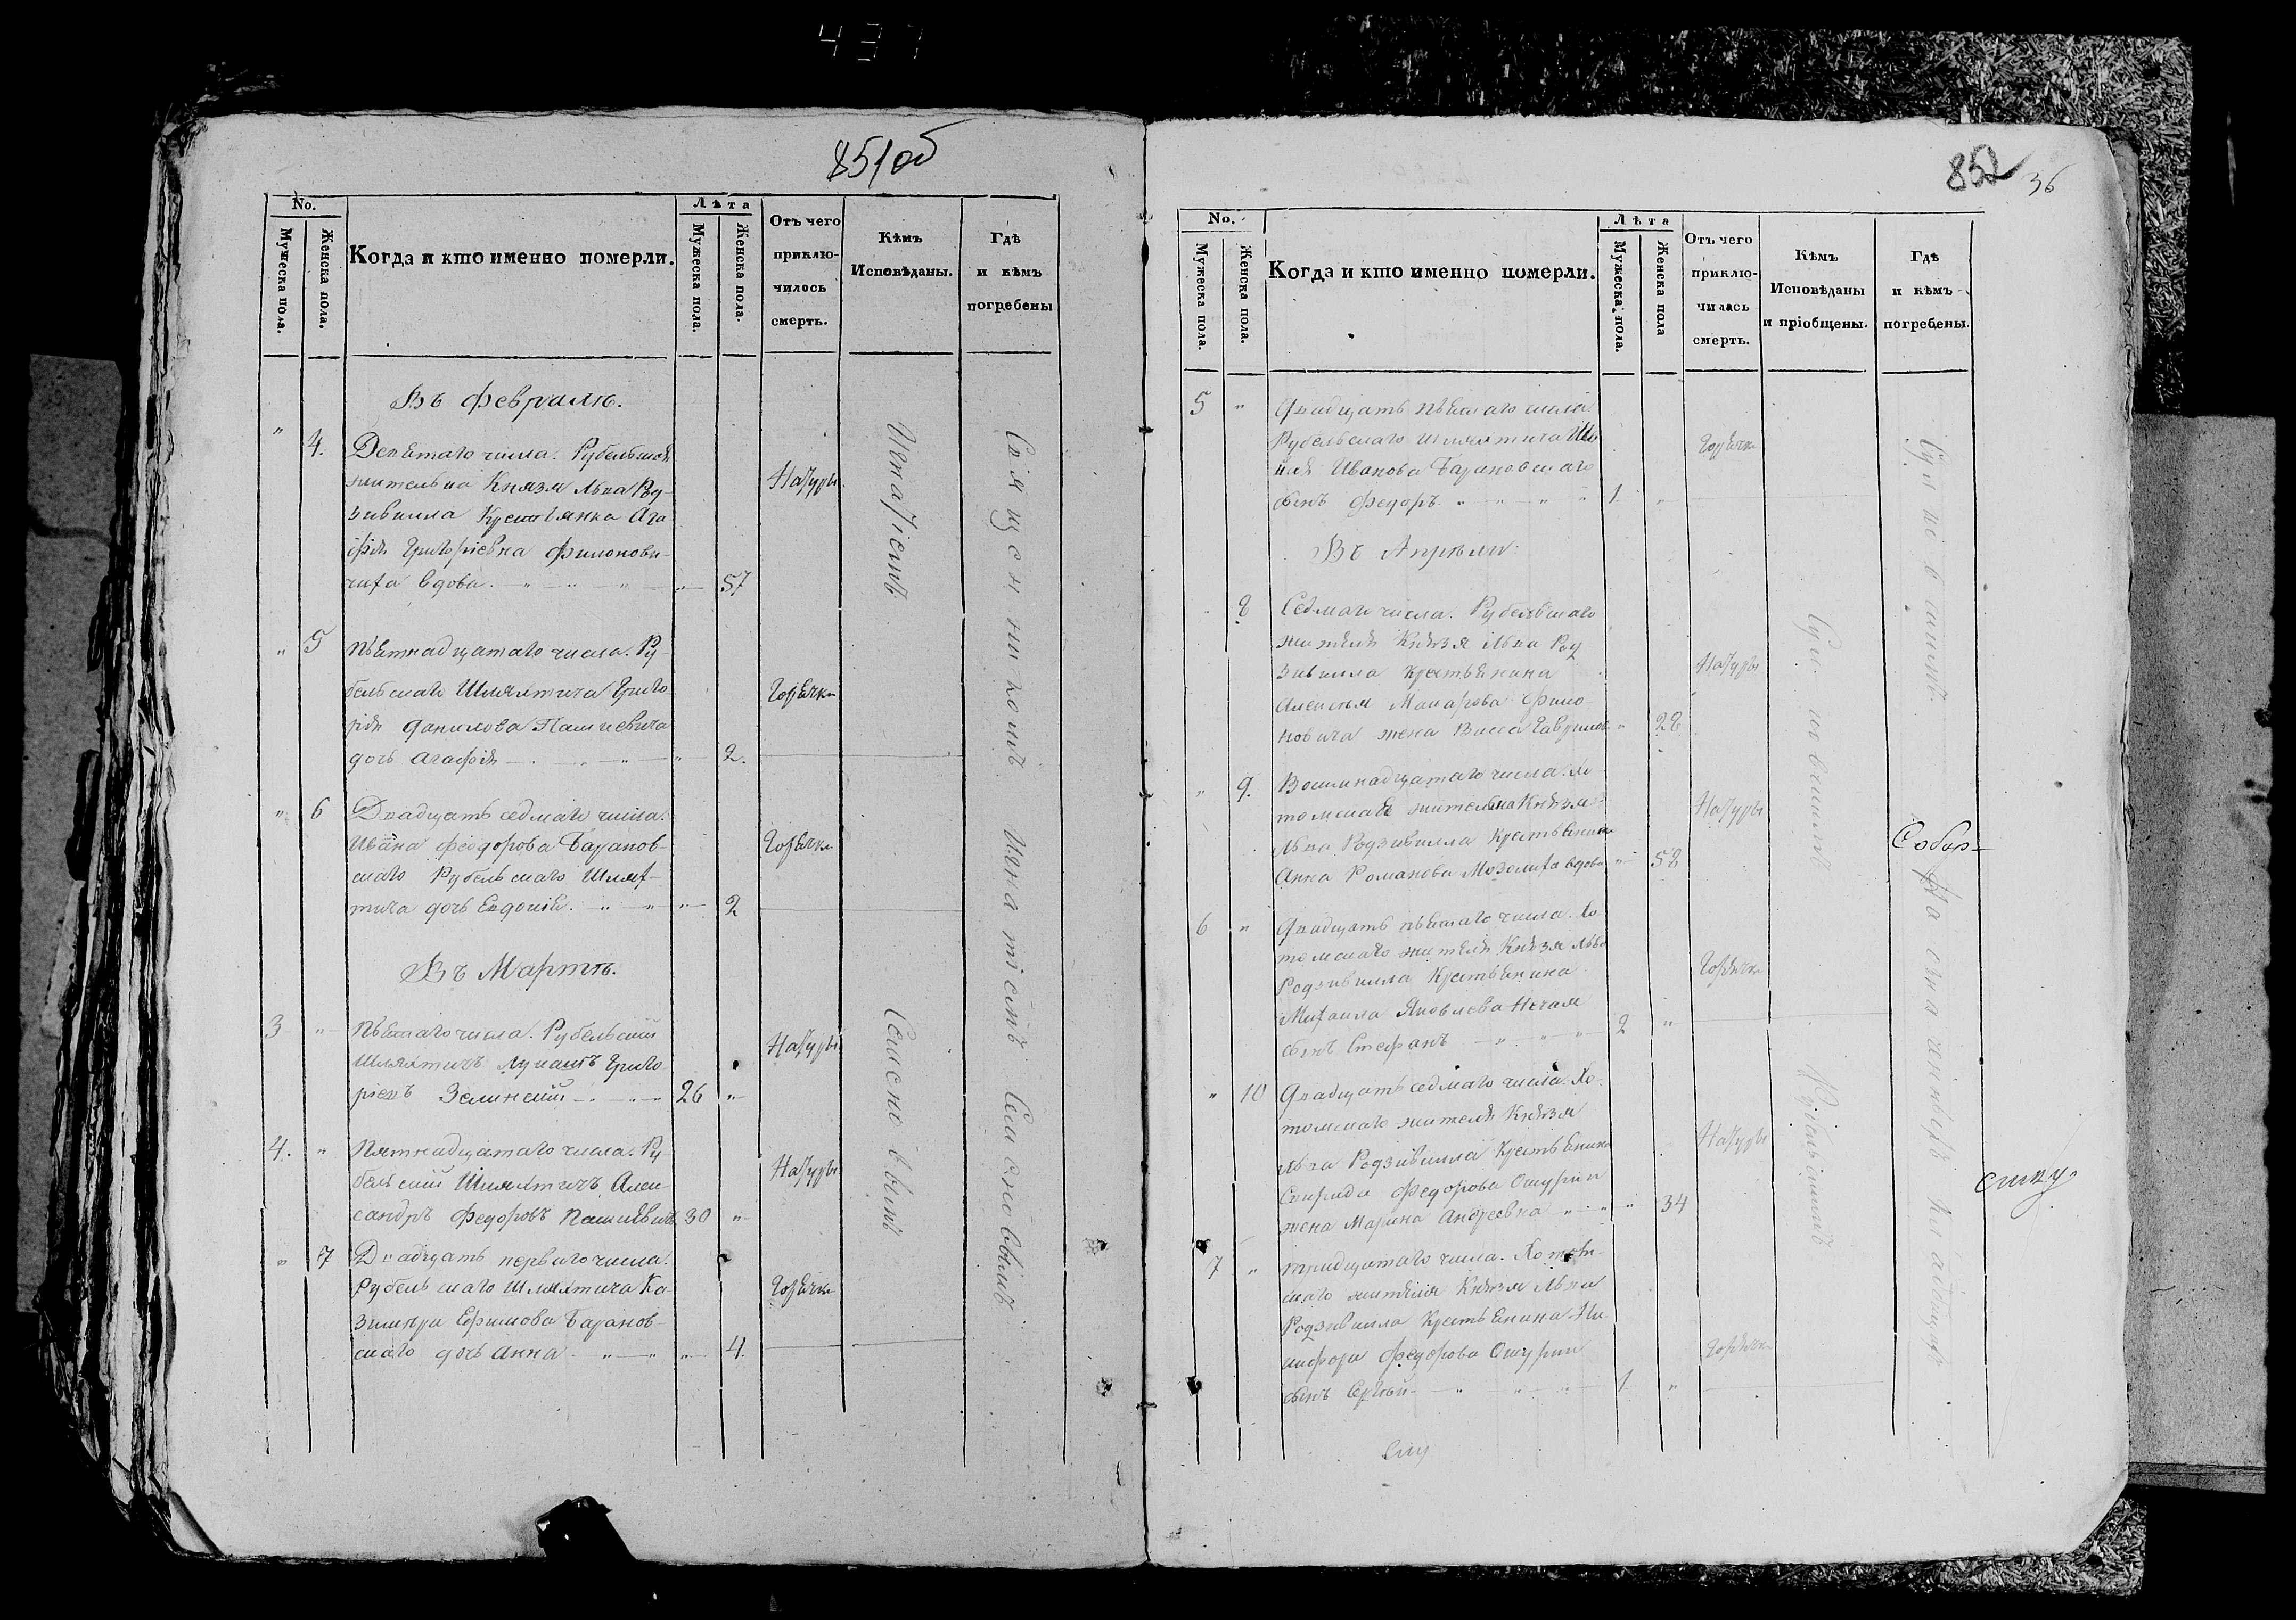 437
851об
No.
Мужеска пола.
Женска пола.
Когда и кто именно померли.
Лѣта
Мужеска пола.
Женска пола.
Отъ чего
приклю-
чилось
смерть.
Кѣмъ
Исповѣданы.
Гдѣ
и кѣмъ
погребены
Въ Февралѣ.
" 4. Девѣтаго числа. Рубельская
жителька Князя Льва Род-
зивилла Крестіянка Ага-
фія Григоріевна Филонови-
чиха вдова. " 57
Натуры
" 5 Пѣтнадцатаго числа. Ру-
бельскаго Шляхтича Григо
рія Данилова Пашкевича
дочь Агафія " 2.
Горѣчки
" 6 Двадцать седмаго числа.
Ивана Феодорова Баранов-
скаго Рубельскаго Шлях-
тича дочь Евдокія. " 2
Горѣчки
Въ Мартѣ.
3 " Пѣтаго числа. Рубельскій
Шляхтичъ Лукашъ Григо
ріевъ Зелинскій 26 "
Натуры
4. " Пятнадцатаго числа. Ру
бельскій Шляхтичъ Алек-
сандръ Федоровъ Пашкевичъ 30 "
Натуры
" 7 Двадцать перваго числа.
Рубельскаго Шляхтича Ка-
зимѣра Ефимова Баранов-
скаго дочь Анна " 4.
Горѣчки
Игнатіемъ
Священникомъ Игнатіемъ
852 36
No.
Мужеска пола.
Женска пола.
Когда и кто именно померли.
Лѣта
Мужеска пола.
Женска пола
Отъ чего
приклю-
чилась
смерть.
Кѣмъ
Исповѣданы
и пріобщены.
Гдѣ
и кѣмъ
погребены.
5 " Двадцать пѣтаго числа
Рубельскаго Шляхтича
Иванова Барановскаго
сынъ Федоръ " 1 "
Горѣчки
Въ Апрѣли
" 8 Седмаго числа. Рубельскаго
жителя Князя Льва Род
зивилла Крестьѣнина
Алексѣя Макарова Фило
новича жена Васса Гаврилов " 28
Натуры
" 9. Восимнадцатаго числа. Хо
томская жителька Князя
Льва Родзивилла Крестьѣнка
Анна Романова вдова " 58
Натуры
6 " Двадцать пѣтаго числа. Хо
томскаго жителя Князя Льва
Родзивилла Крестьѣнина
Михаила Яковлева Нечая
сынъ Стефанъ " 2 "
Горѣчки
" 10 Двадцать седмаго числа. Хо-
томскаго жителя Князя
Льва Родзивилла Крестьѣнина
Спирида Федорова
жена Марина Андреевна " 34
Натуры
7 " тридцатаго числа. Хотом-
скаго жителя Князя Льва
Родзивилла Крестьѣнина Ни
кифора Федорова
сынъ Сергѣй 1 "
Горѣчки